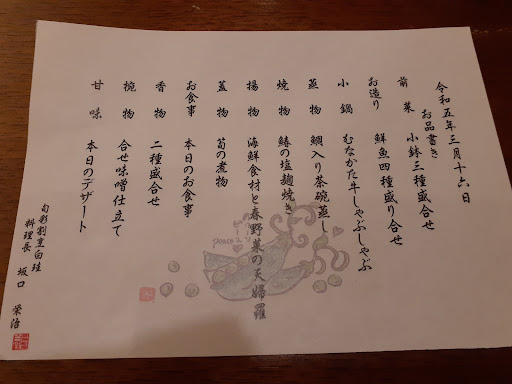 令和五年三月十六日
お品書き
前菜 小鉢三種盛合せ
お造り 鮮魚四種盛り合せ
小鍋 むなかた牛しゃぶしゃぶ
蒸物 鯛入り茶碗蒸し
焼物 鰆の塩麹焼き
揚物 海鮮食材と春野菜の天婦羅
蓋物 筍の煮物
お食事 本日のお食事
香物 二種盛合せ
椀物 合せ味噌仕立て
甘味 本日のデザート
旬彩割烹白珪
料理長 坂口 榮治
peace